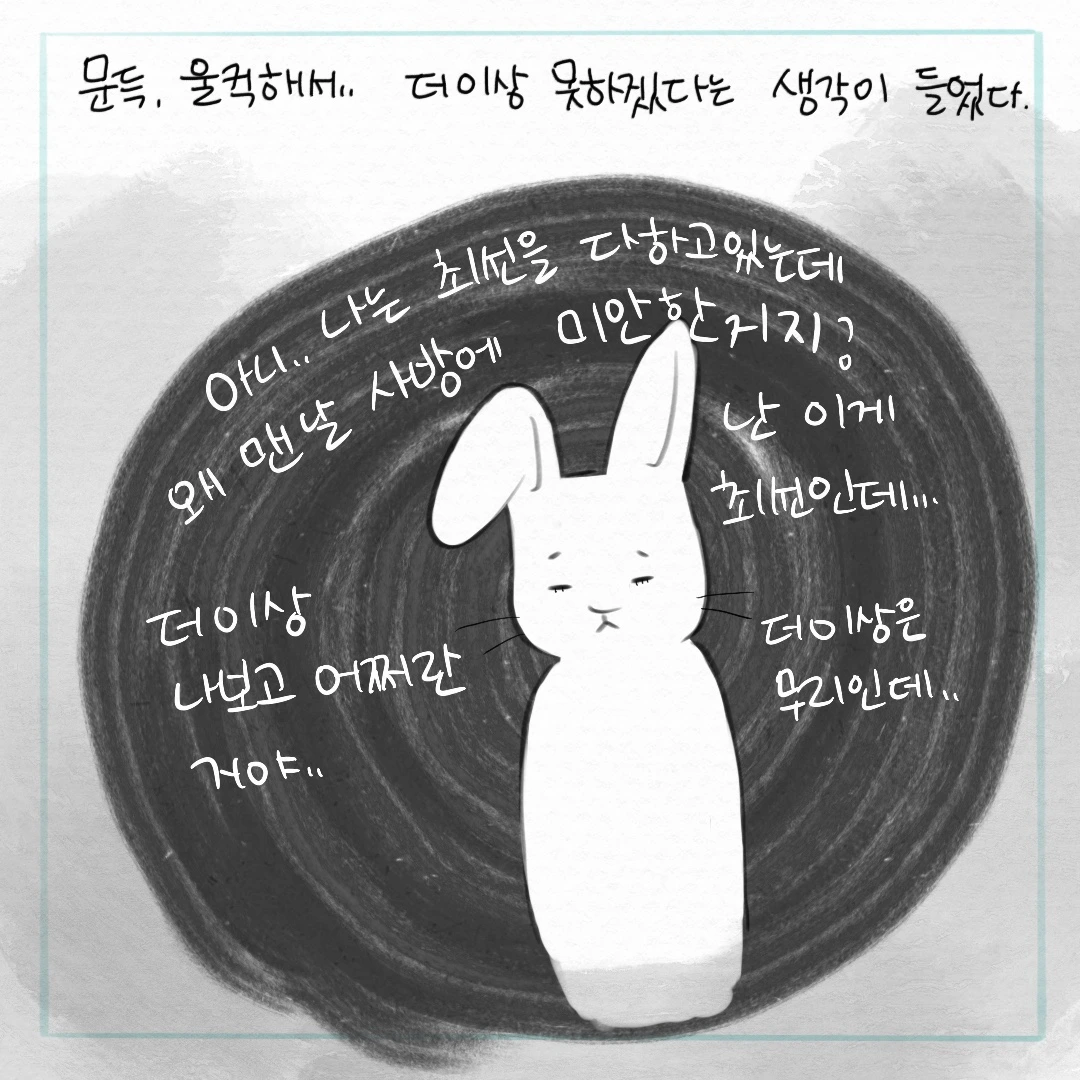 문득, 울컥해서.. 더이상 못하겠다는 생각이 들었다.
아니.. 나는 최선을 다하고있는데
왜 맨날 사방에 미안한거지?
난 이게
최선인데...
더이상
나보고 어쩌란
거야..
더이상은
무리인데..